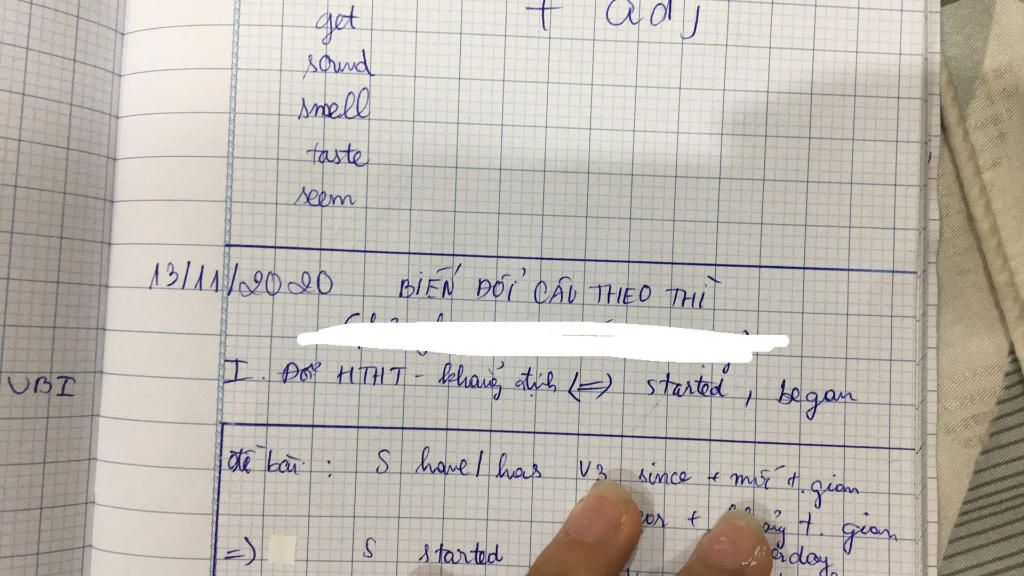 get + adj
sound
smell
taste
seem
13/11/2020 BIẾN ĐỔI CÂU THEO THÌ
I. Đổi HTHT - khẳng định (=) started, began
VBI
Đề bài : S have/has V3 since + mốc t.gian
+ t. gian
=) S started